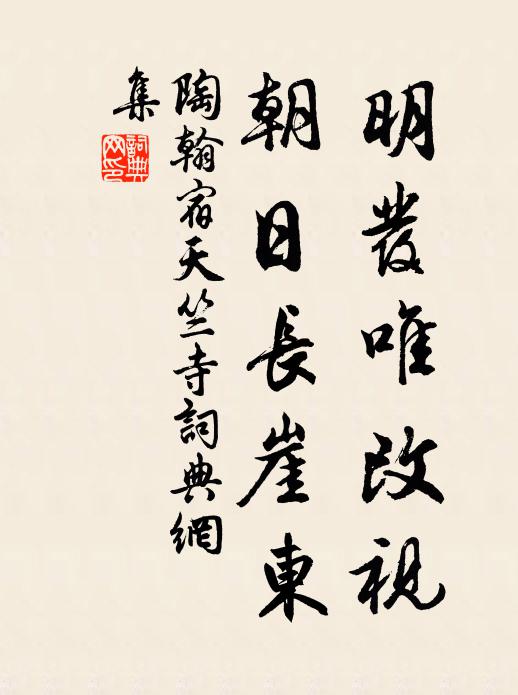 明發唯改視
朝日長崖東
陶翰宿天竺寺詞典網
集
詞典網印